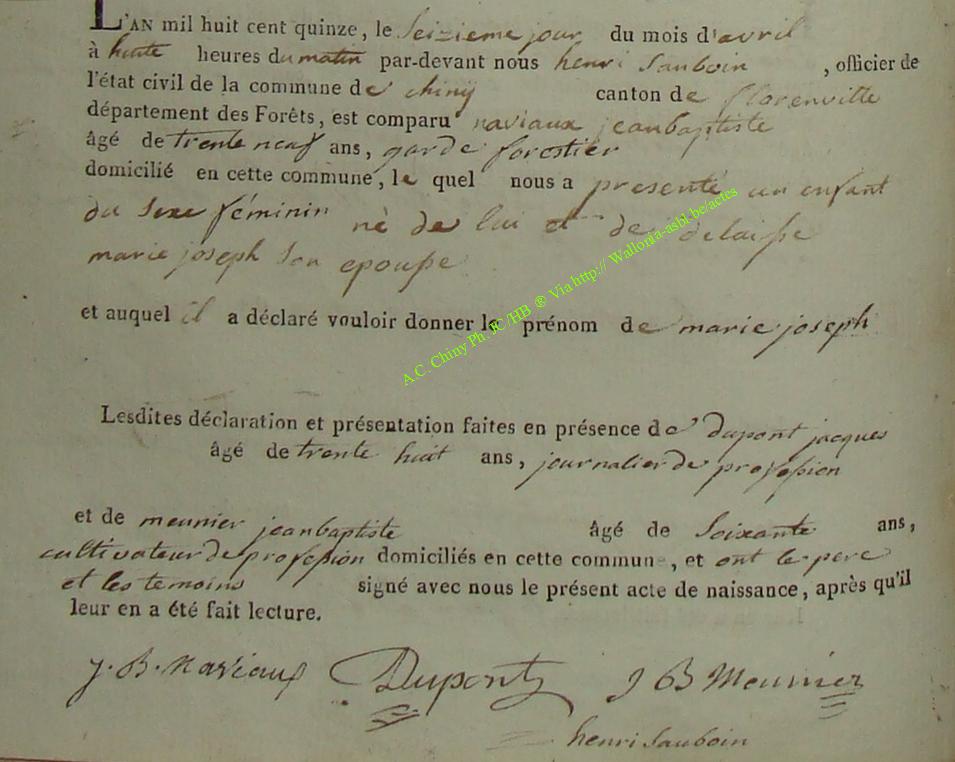 L'AN mil huit cent quinze, le Seizieme jour du mois d'avril
à huite heures du matin par-devant nous henri Sauboin, officier de
l'état civil de la commune de chinÿ canton de florenville
département des Forêts, est comparu naviaux jeanbaptiste
âgé de trente neuf ans, garde forestier
domicilié en cette commune, le quel nous a presenté un enfant
du Sexe féminin né de lui et de delaisse
marie joseph Son epouse
et auquel il a déclaré vouloir donner le prénom de marie joseph
A.C. Chiny Ph. JC /HB ® Via http:// Wallonia-asbl.be/actes
Lesdites déclaration et présentation faites en présence de dupont jacques
âgé de trente huit ans, journalier de profession
et de meunier jeanbaptiste âgé de Soixante ans,
cultivateur de profession domiciliés en cette commune, et ont le pere
et les temoins signé avec nous le présent acte de naissance, après qu'il
leur en a été fait lecture.
J. B. Naviaux Dupont J B Meunier
henri Sauboin